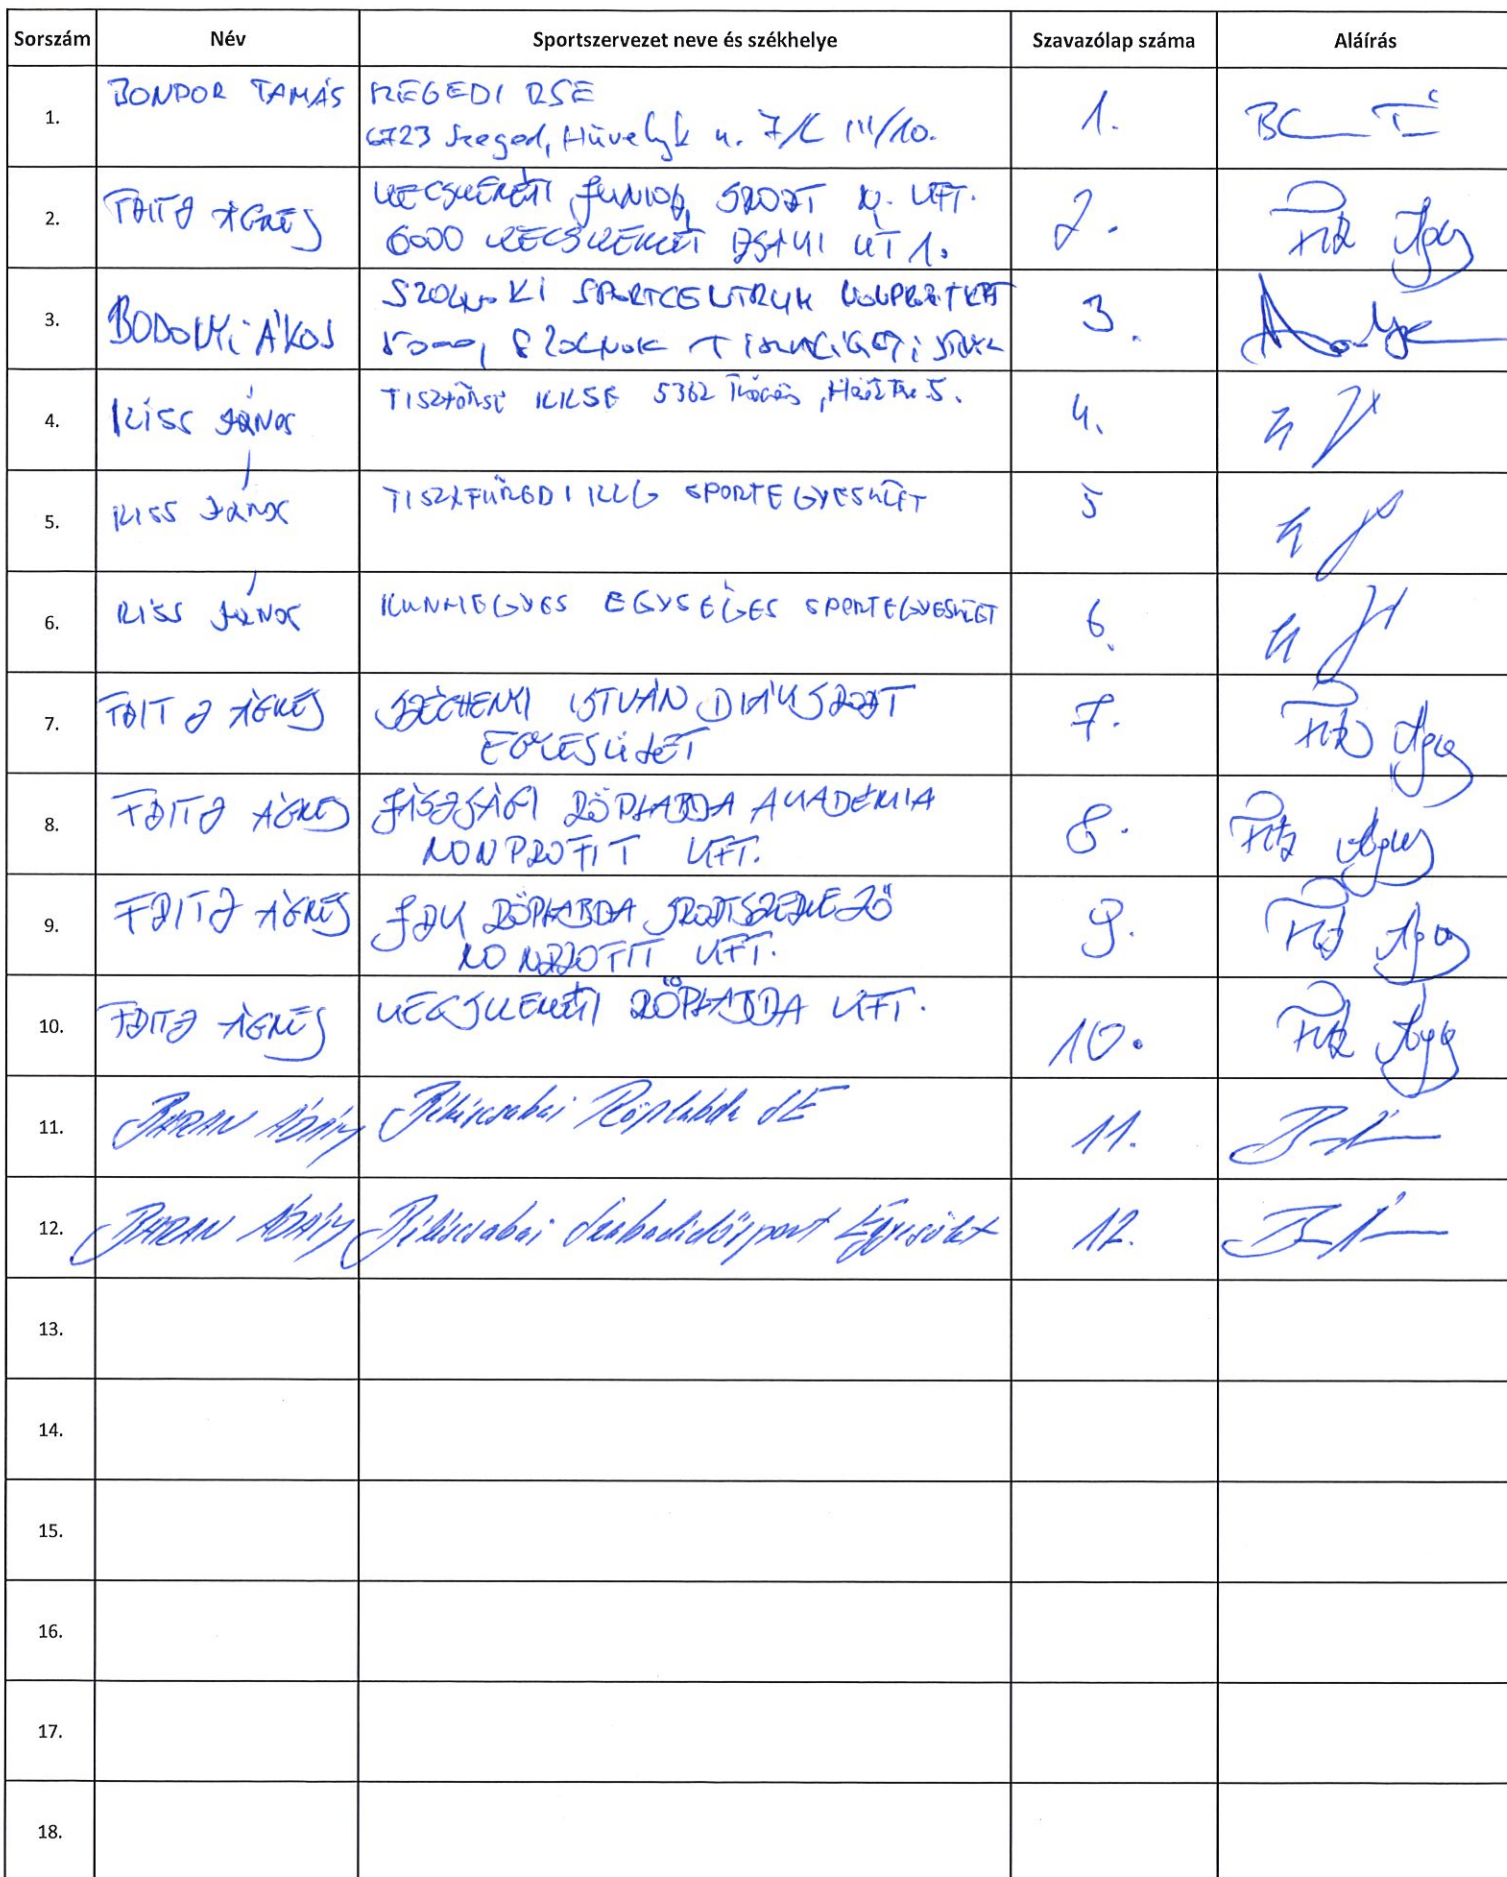 Sorszám Név Sportszervezet neve és székhelye Szavazólap száma Aláírás
1. BONDOR TAMÁS SZEGEDI RSE 1.
6723 Szeged, Hüvelyk u. 7/C III/10.
2. FRITZ ÁGNES KECSKEMÉTI JUNIOR SPORT N. KFT. 2.
6000 KECSKEMÉT ÚT 1.
3. BODOLYI ÁKOS SZOLNOKI SPORTCENTRUM NONPROFIT KFT 3.
5000, SZOLNOK TISZALIGETI
4. KISS JÁNOS TISZAÖRSI KKSE 5362 5. 4.
5. KISS JÁNOS TISZAFÜREDI KLG SPORTEGYESÜLET 5
6. KISS JÁNOS KUNHEGYES EGYSÉGES SPORTEGYESÜLET 6.
7. FRITZ ÁGNES SZÉCHENYI ISTVÁN DIÁKSPORT 7.
EGYESÜLET
8. FRITZ ÁGNES JÁSZSÁGI RÖPLABDA AKADÉMIA 8.
NONPROFIT KFT.
9. FRITZ ÁGNES JRK RÖPLABDA SPORTSZERVEZŐ 9.
NONPROFIT KFT.
10. FRITZ ÁGNES KECSKEMÉTI RÖPLABDA KFT. 10.
11. BARAN ÁDÁM Békéscsabai Röplabda SE 11.
12. BARAN ÁDÁM Békéscsabai Szabadidősport Egyesület 12.
13.
14.
15.
16.
17.
18.